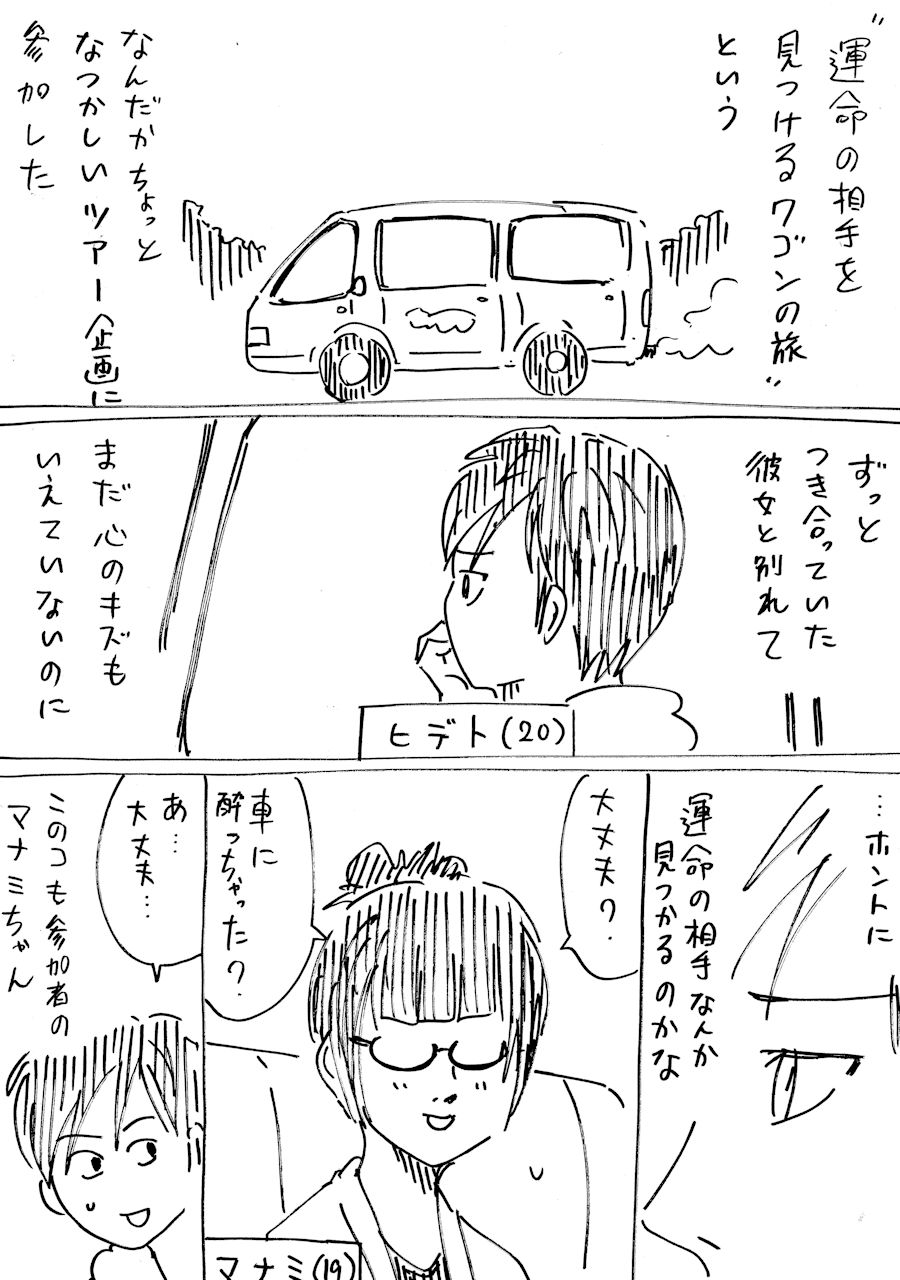 "運命の相手を
見つけるワゴンの旅"
という
なんだかちょっと
なつかしいツアー企画に
参加した
ずっと
つき合っていた
彼女と別れて
まだ心のキズも
いえていないのに
ヒデト(20)
…ホントに
運命の相手なんか
見つかるのかな
大丈夫?
車に
酔っちゃった?
マナミ(19)
あ…
大丈夫…
このコも参加者の
マナミちゃん